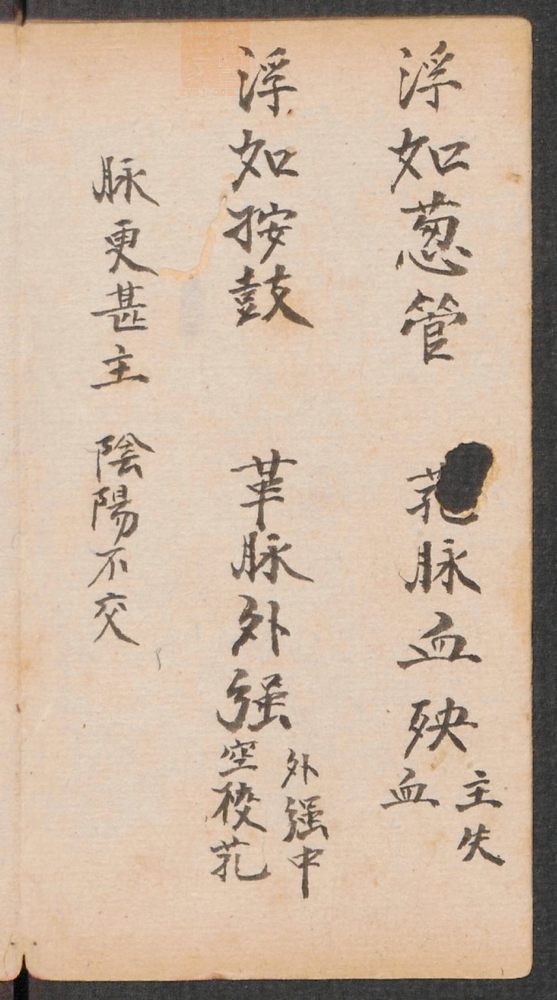 浮如葱管　芤脉血殃主失血
浮如按鼓　革脉外强外强中空校芤
脉更甚主　陰陽不交